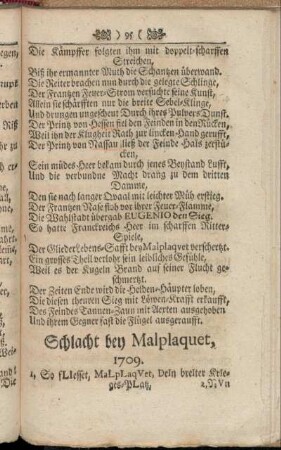 ) 95 (
Die Kämpffer folgten ihm mit doppelt-scharffen
Streichen,
Biß ihr ermannter Muth die Schantzen überwand.
Die Reiter brachen nun durch die gelegte Schlinge,
Der Frantzen Feuer-Strom versuchte seine Kunst,
Allein sie schärfften nur die breite Sebel-Klinge,
Und drungen ungescheut Durch ihres Pulvers Dunst.
Der Printz von Hessen fiel den Feinden in den Rücken,
Weil ihn der Klugheit Rath zur lincken-Hand gerufft,
Der Printz von Nassau ließ der Feinde-Hals zerstü-
cken,
Sein müdes-Heer bekam durch jenes Beystand Lufft,
Und die verbundne Macht drang zu dem dritten
Damme,
Den sie nach langer Qvaal mit leichter Müh erstieg.
Der Frantzen Nase stob vor ihrer Feuer-Flamme,
Die Wahlstadt übergab EUGENIO den Sieg.
So hatte Franckreichs Heer im scharffen Ritter-
Spiele,
Der Glieder Lebens-Safft bey Malplaqvet verschertzt.
Ein grosses Theil verlohr sein leibliches Gefühle,
Weil es der Kugeln Brand auf seiner Flucht ge-
schmertzt.
Der Zeiten Ende wird die Helden-Häupter loben,
Die diesen theuren Sieg mit Löwen-Krafft erkaufft,
Des Feindes Tannen-Zaun mit Aexten ausgehoben
Und ihrem Gegner fast die Flügel ausgeraufft.
Schlacht bey Malplaquet,
1709.
1, So fLIesset, MaLpLaqVet, DeIn breIter KrIe-
ges-PLatz,